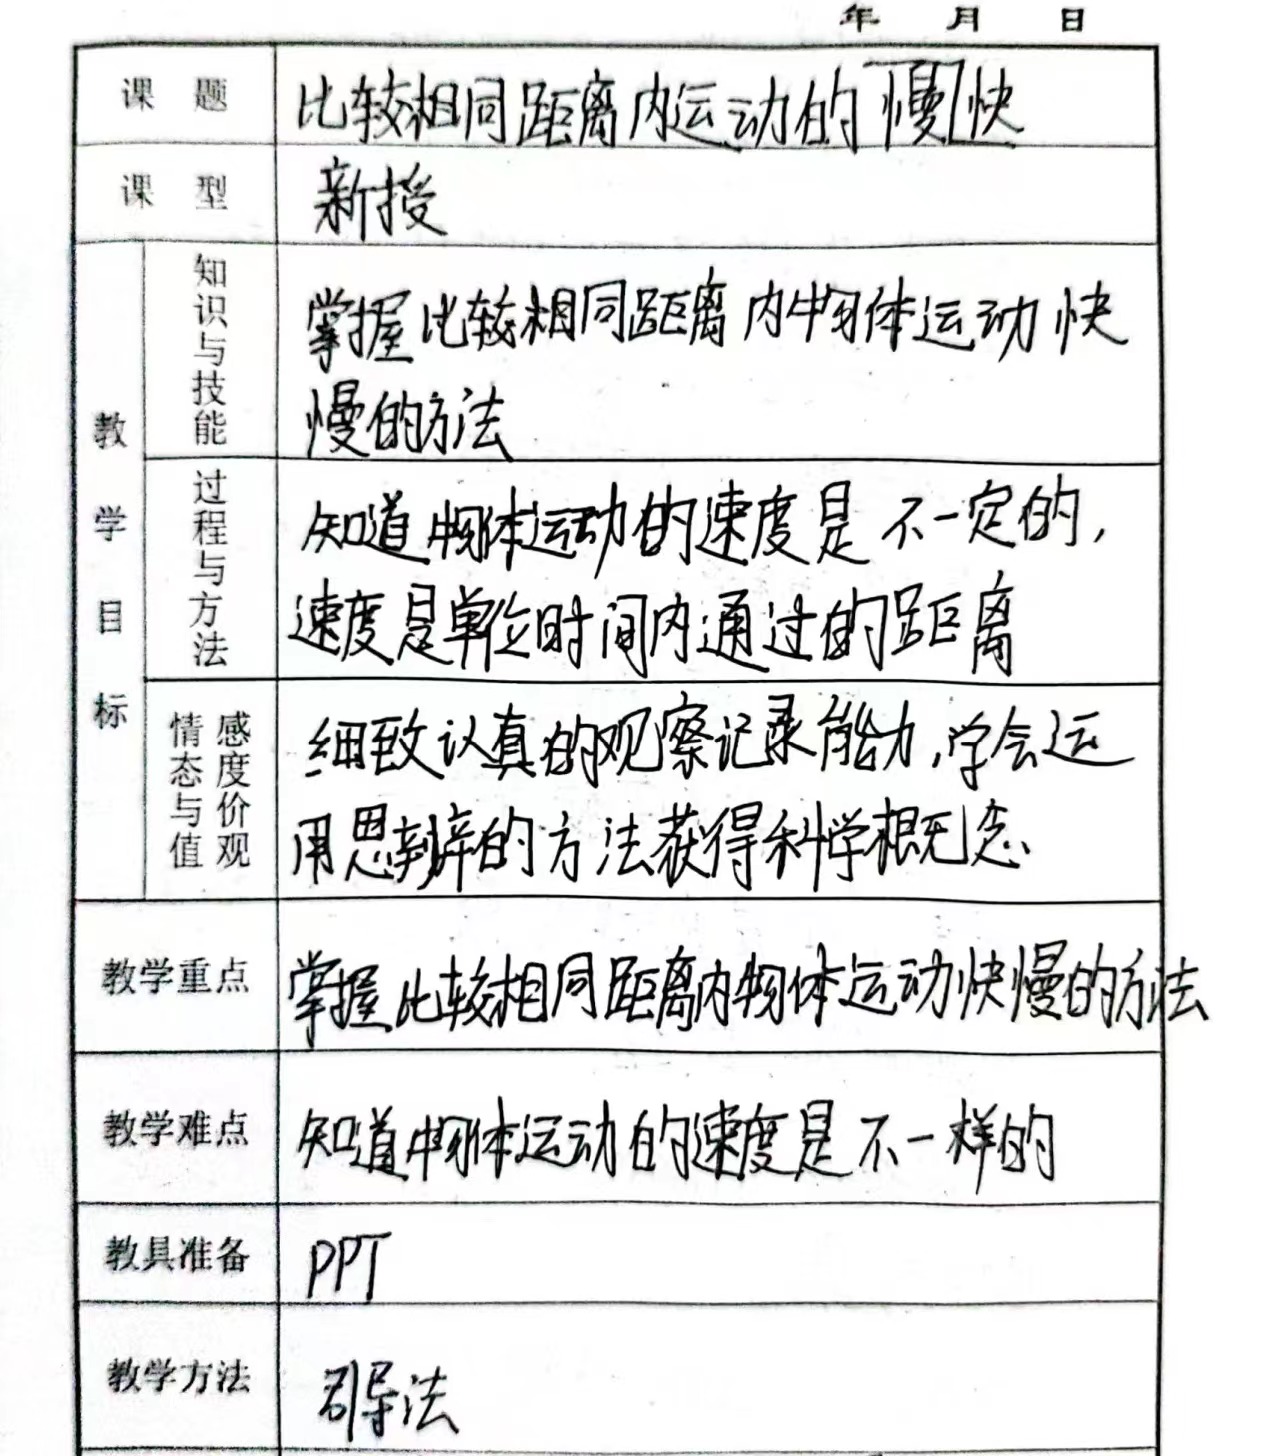 年 月 日
课 题 比较相同距离内运动的慢快
课 型 新授
教学目标
知识与技能 掌握比较相同距离内物体运动快
慢的方法
过程与方法 知道物体运动的速度是不一定的,
速度是单位时间内通过的距离
情感态度与价值观 细致认真的观察记录能力,学会运
用思辨的方法获得科学概念.
教学重点 掌握比较相同距离内物体运动快慢的方法
教学难点 知道物体运动的速度是不一样的
教具准备 PPT
教学方法 引导法